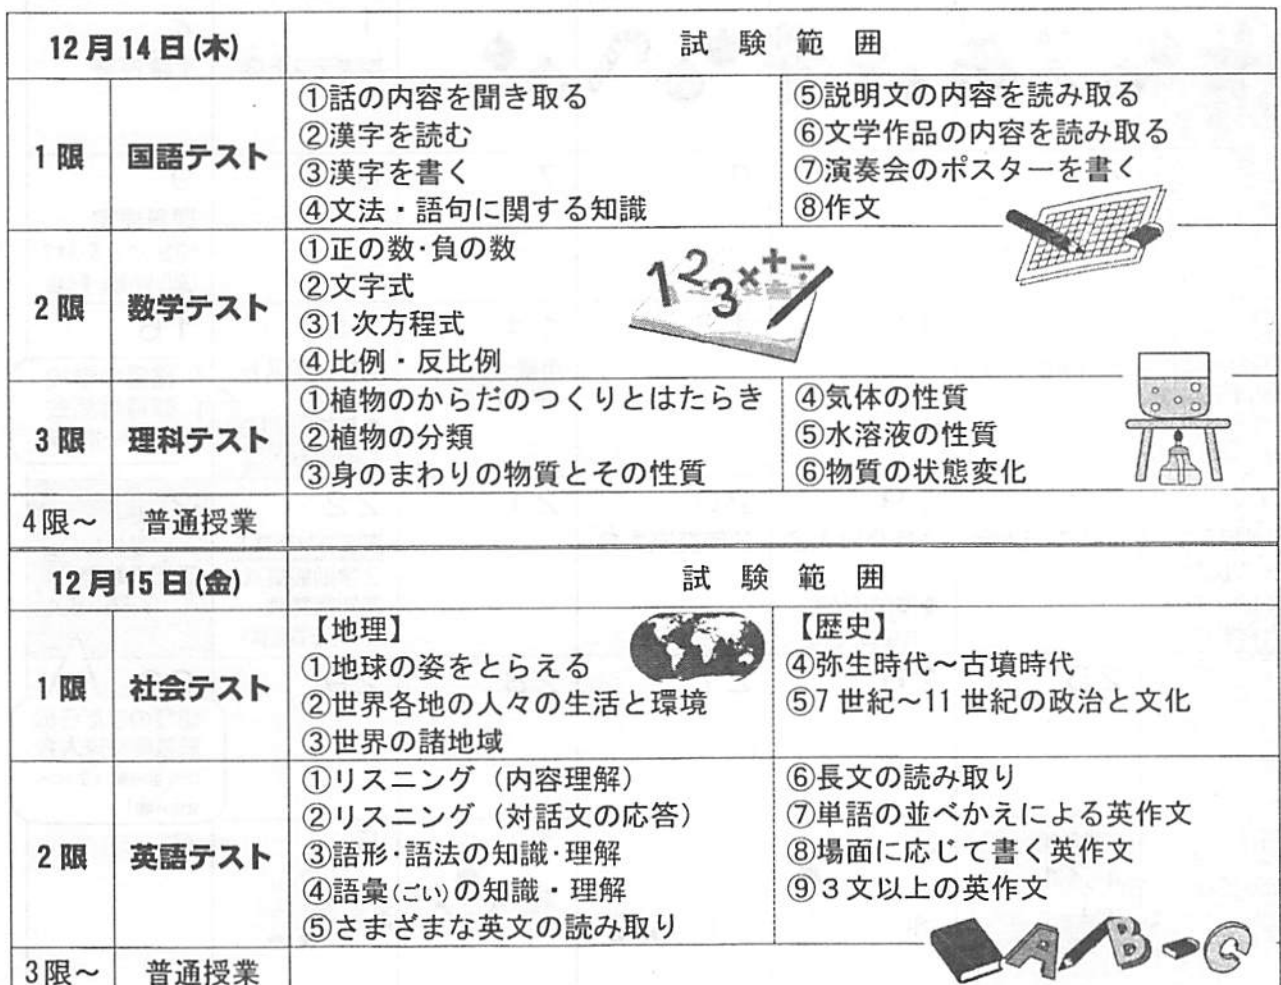 12月14日(木) 試験範囲
1限 国語テスト
①話の内容を聞き取る
②漢字を読む
③漢字を書く
④文法・語句に関する知識
⑤説明文の内容を読み取る
⑥文学作品の内容を読み取る
⑦演奏会のポスターを書く
⑧作文
2限 数学テスト
①正の数・負の数
②文字式
③1次方程式
④比例・反比例
123×+÷
3限 理科テスト
①植物のからだのつくりとはたらき
②植物の分類
③身のまわりの物質とその性質
④気体の性質
⑤水溶液の性質
⑥物質の状態変化
4限～ 普通授業
12月15日(金) 試験範囲
1限 社会テスト
【地理】
①地球の姿をとらえる
②世界各地の人々の生活と環境
③世界の諸地域
【歴史】
④弥生時代～古墳時代
⑤7世紀～11世紀の政治と文化
2限 英語テスト
①リスニング（内容理解）
②リスニング（対話文の応答）
③語形・語法の知識・理解
④語彙(ごい)の知識・理解
⑤さまざまな英文の読み取り
⑥長文の読み取り
⑦単語の並べかえによる英作文
⑧場面に応じて書く英作文
⑨３文以上の英作文
A B C
3限～ 普通授業